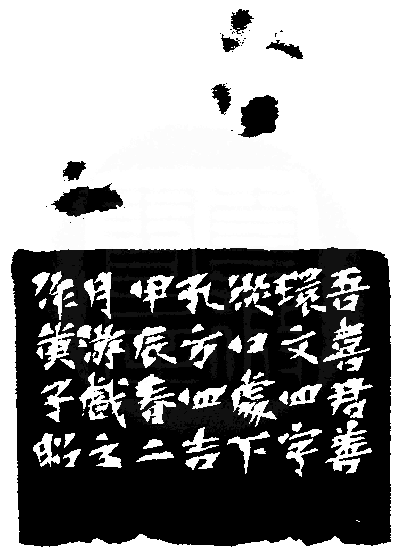 吾喜君善
環文四字
從口處下
孔方四吉
甲辰春二
月游戲之
作黃子